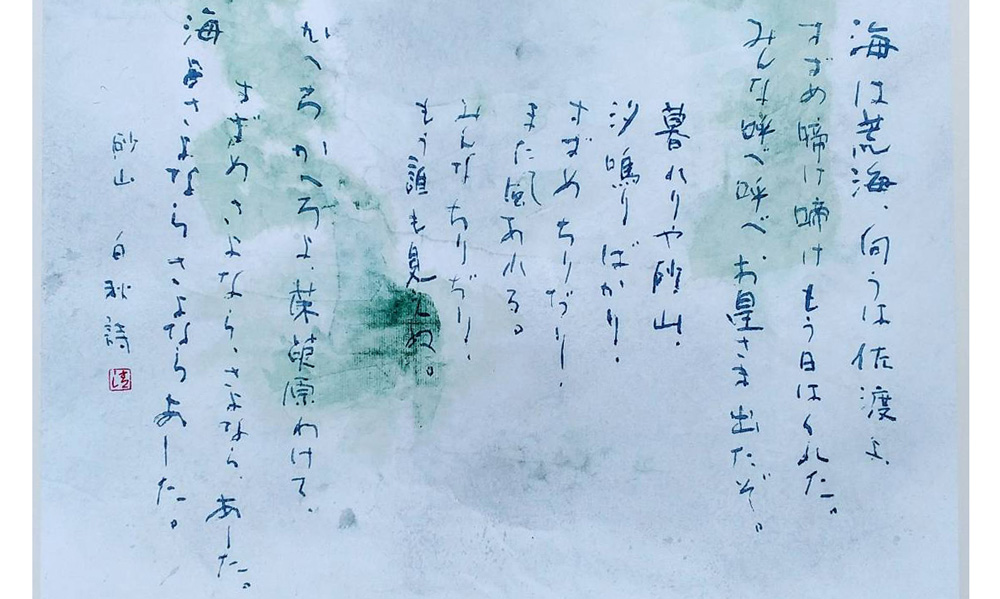 海は荒海、向うは佐渡よ、
すずめ啼け啼けもう日はくれた。
みんな呼べ呼べ、お星さま出たぞ。
暮れりや砂山、
汐鳴りばかり、
すずめちりぢり、
また風あれる。
みんなちりぢり、
もう誰も見えぬ。
かへろかへろよ、茱萸原わけて、
すずめさよなら、さよなら、あした。
海よさよならさよならあした。
砂山 白秋 詩